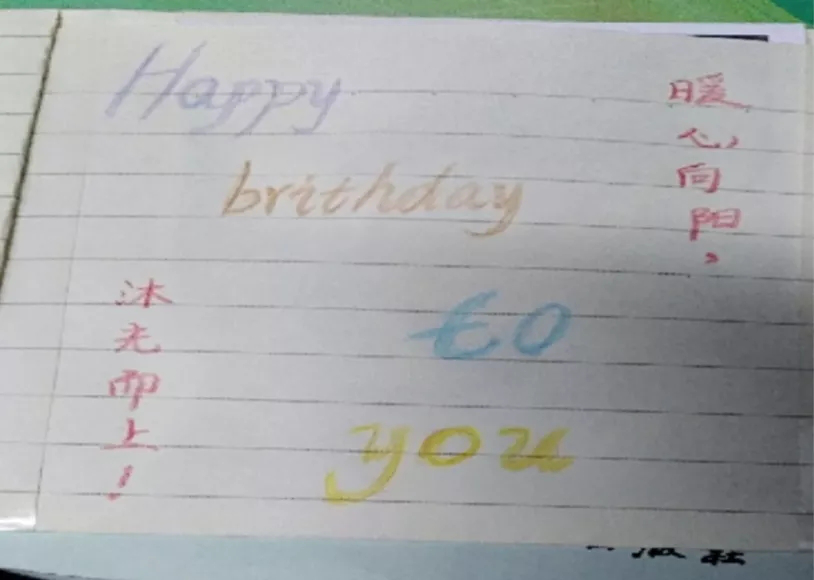 Happy
brithday
to
you
暖心向阳,
沐光而上!
版社